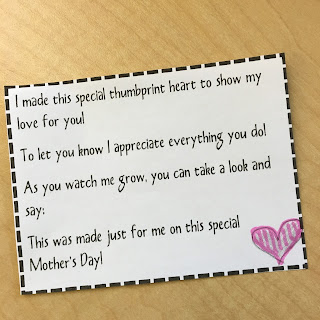 I made this special thumbprint heart to show my
love for you!
To let you know I appreciate everything you do!
As you watch me grow, you can take a look and
say:
This was made just for me on this special
Mother's Day!